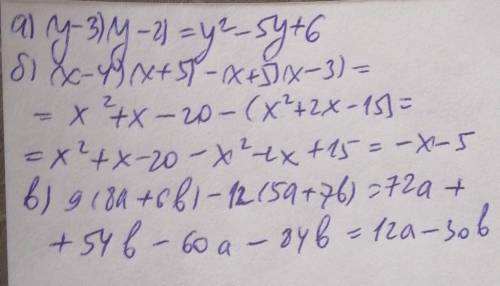 а) (y-3)(y-2) = y²-5y+6
б) (x-4)(x+5) - (x+5)(x-3) =
= x²+x-20-(x²+2x-15) =
= x²+x-20-x²-2x+15 = -x-5
в) 9(8a+6b)-12(5a+7b) = 72a+
+54b-60a-84b = 12a-30b